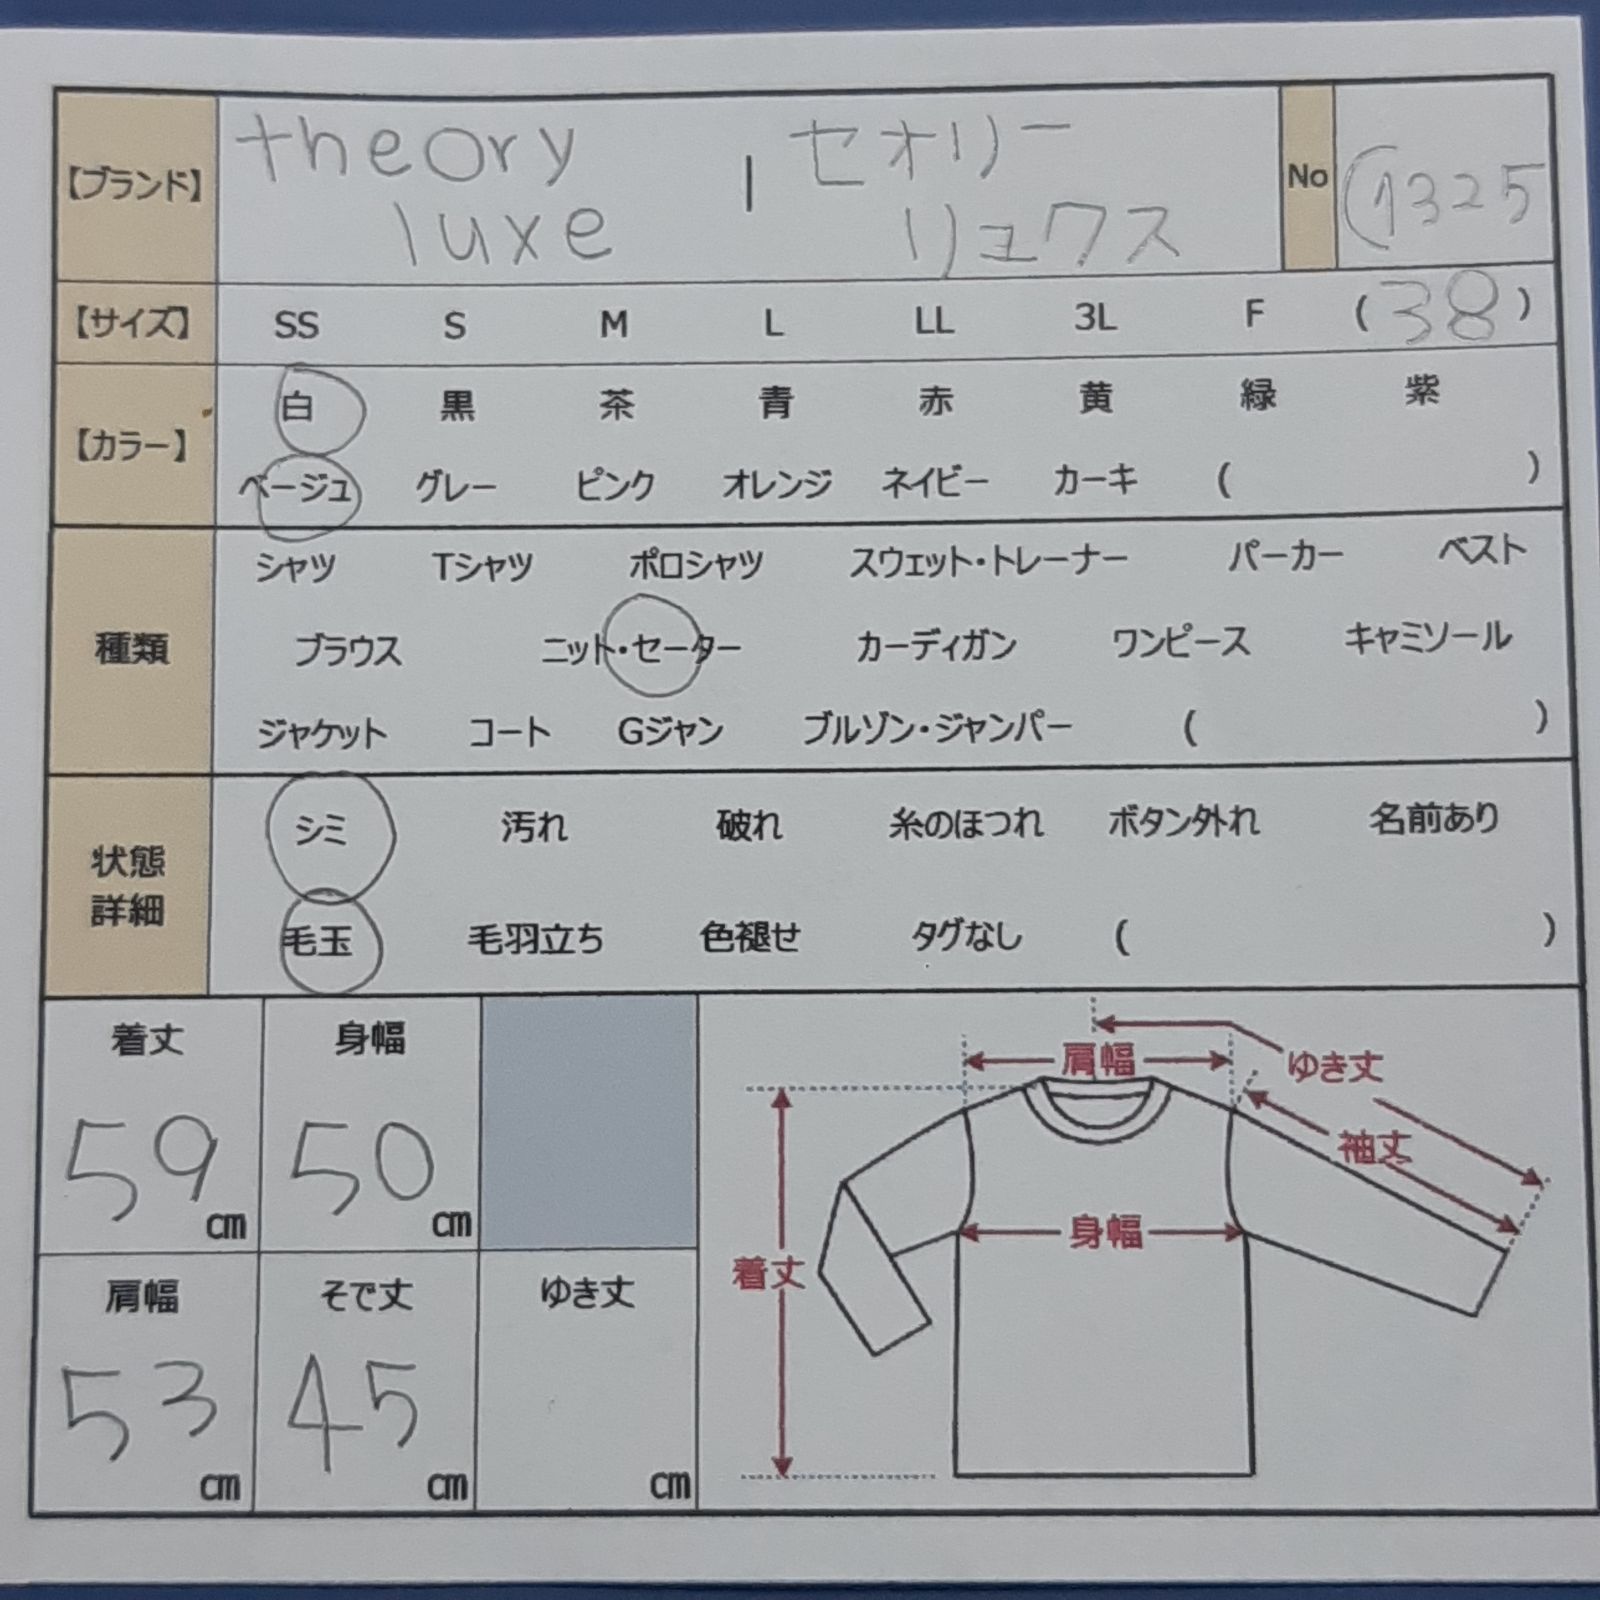 【ブランド】 theory luxe | セオリー リュクス No (1325
【サイズ】 SS S M L LL 3L F (38)
【カラー】 白 黒 茶 青 赤 黄 緑 紫
ベージュ グレー ピンク オレンジ ネイビー カーキ ( )
種類 シャツ Tシャツ ポロシャツ スウェット・トレーナー パーカー ベスト
ブラウス ニット・セーター カーディガン ワンピース キャミソール
ジャケット コート Gジャン ブルゾン・ジャンパー ( )
状態詳細 シミ 汚れ 破れ 糸のほつれ ボタン外れ 名前あり
毛玉 毛羽立ち 色褪せ タグなし ( )
着丈 身幅
59cm 50cm
肩幅 そで丈 ゆき丈
53cm 45cm cm
肩幅 ゆき丈
袖丈
身幅
着丈